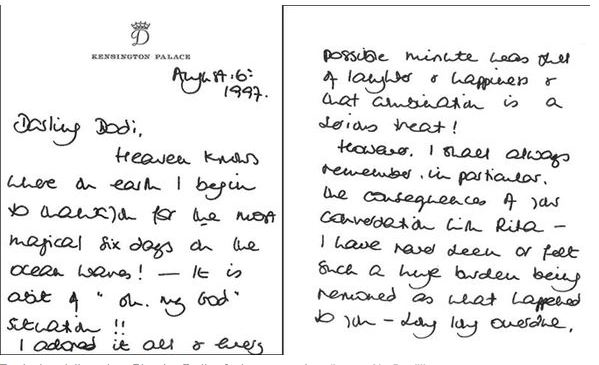 D
KENSINGTON PALACE
August. 6:
1997.
Darling Dodi,
Heaven knows
where on earth I begin
to thank you for the most
magical six days on the
ocean waves! – It is
a bit of "oh. my God"
situation !!
I adored it all & every
possible minute was full
of laughter & happiness &
that combination is a
serious treat!
However. I shall always
remember. in particular.
the consequences of your
conversation with Rita –
I have never seen or felt
such a huge burden being
removed as what happened
to you – long long overdue.